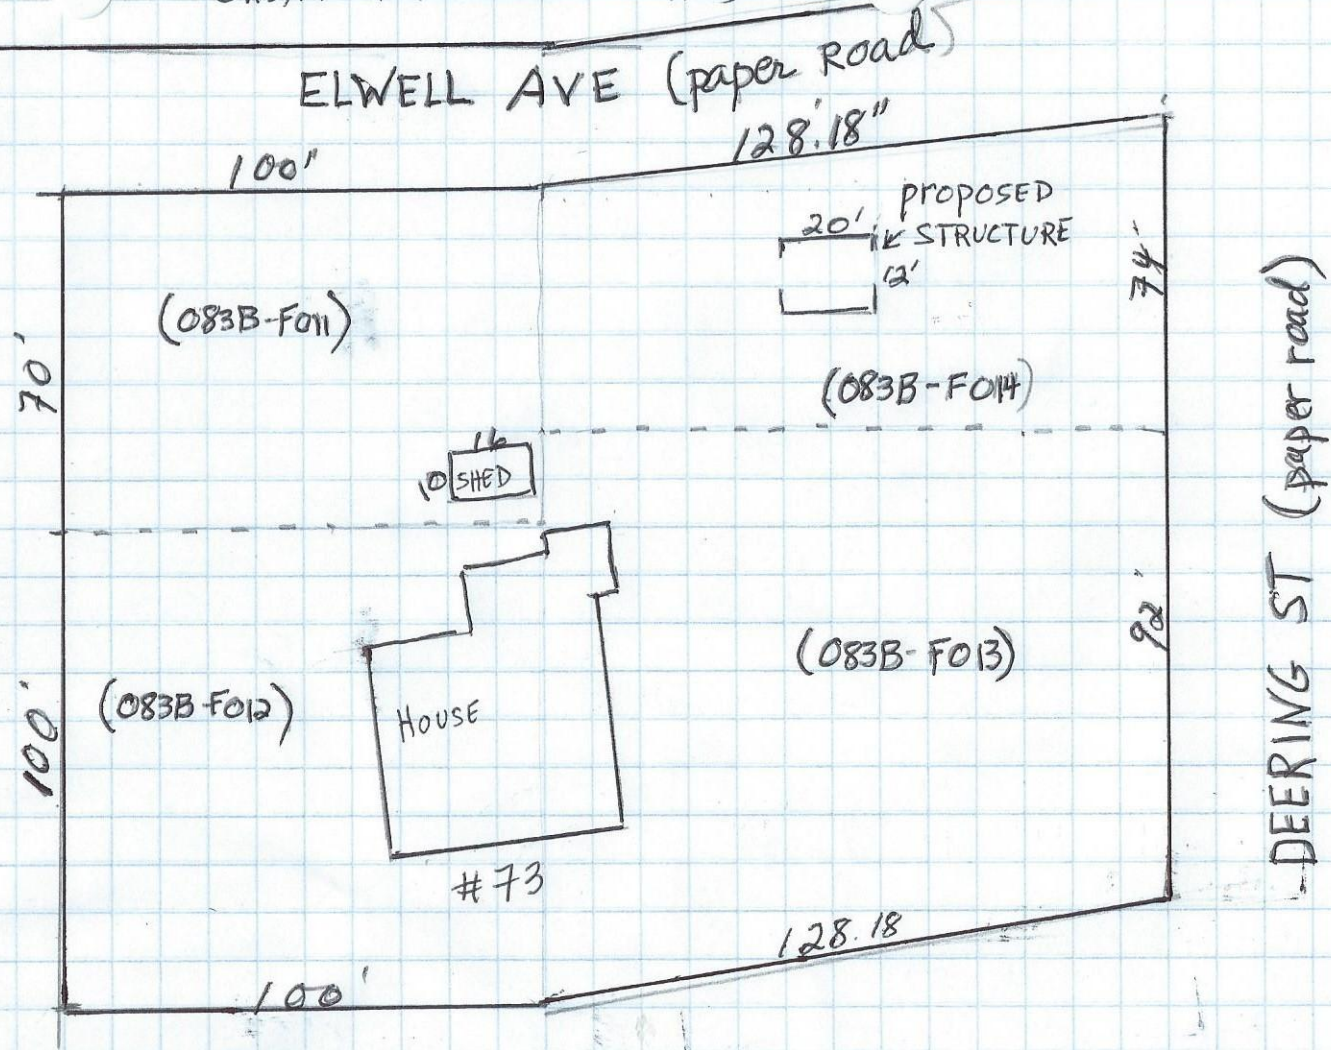 ELWELL AVE (paper Road)
100'
128'.18"
proposed
20'
STRUCTURE
12'
74'
(083B-F011)
70'
(083B-F014)
16
10
SHED
DEERING ST (paper road)
92'
(083B-F013)
(083B-F012)
HOUSE
100'
#73
128.18
100'